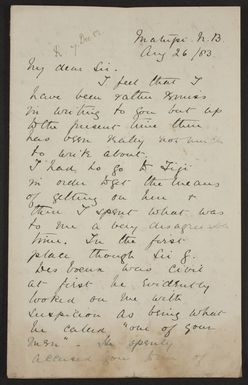 R 7 Dec 83
Matupi N. B
Aug 26 / 83
My dear Sir.
I feel that I
have been rather remiss
in writing to you but up
to the present time there
has been really not much
to write about.
I had to go to Fiji
in order to get the means
of getting on here &
then I spent what was
to me a very disagreeable
time. In the first
place though Sir G.
Des Voeux was civil
at first he evidently
looked on me with
suspicion as being what
he called "one of your
men". He openly
accused you of